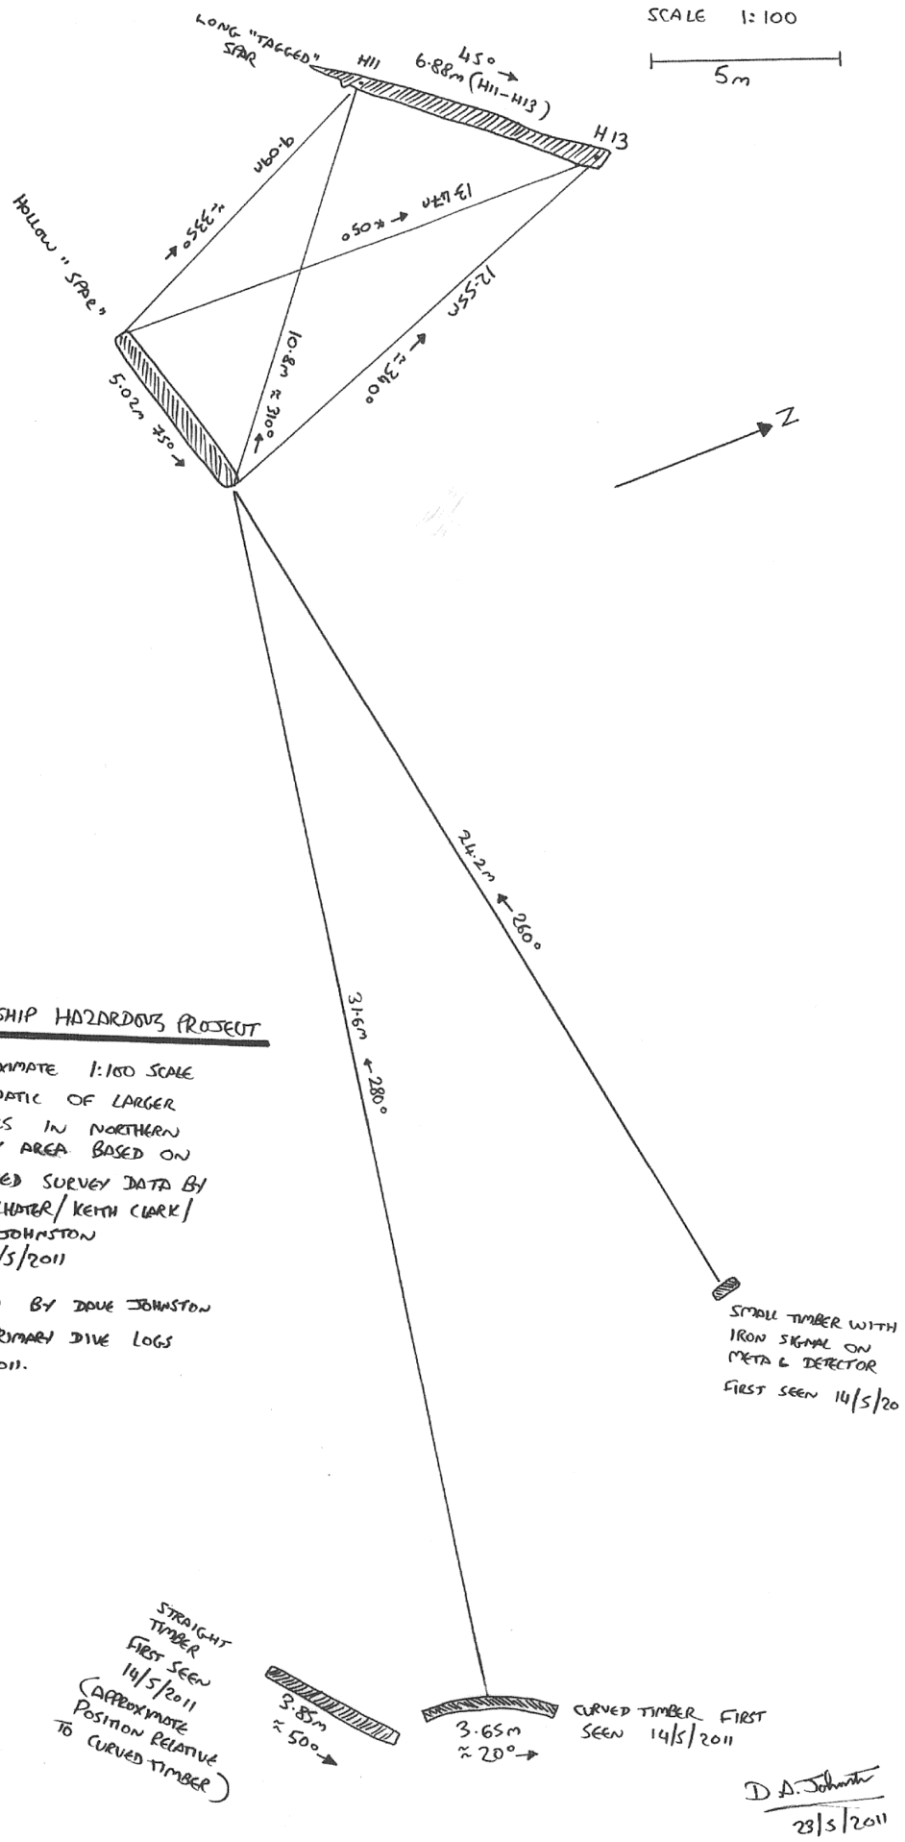 SCALE 1:100
5m
LONG "TAGGED"
SPAR
H11
45° →
6.88m (H11-H13)
H13
9.09m
≈335°
→
13.47m → ≈050°
12.55m
→
≈340°
HOLLOW "SPAR"
5.02m 75° →
10.8m ≈ 310°
→
N
24.2m ← 260°
31.6m ← 280°
SHIP HAZARDOUS PROJECT
XIMATE 1:100 SCALE
ATIC OF LARGER
S IN NORTHERN
Y AREA BASED ON
ED SURVEY DATA BY
HATER/ KEITH CLARK/
JOHNSTON
/5/2011
BY DAVE JOHNSTON
RIMARY DIVE LOGS
011.
SMALL TIMBER WITH
IRON SIGNAL ON
METAL DETECTOR
FIRST SEEN 14/5/20
STRAIGHT
TIMBER
FIRST SEEN
14/5/2011
(APPROXIMATE
POSITION RELATIVE
TO CURVED TIMBER)
3.85m
≈ 50° →
3.65m
≈ 20° →
CURVED TIMBER FIRST
SEEN 14/5/2011
D A. Johnston
23/5/2011